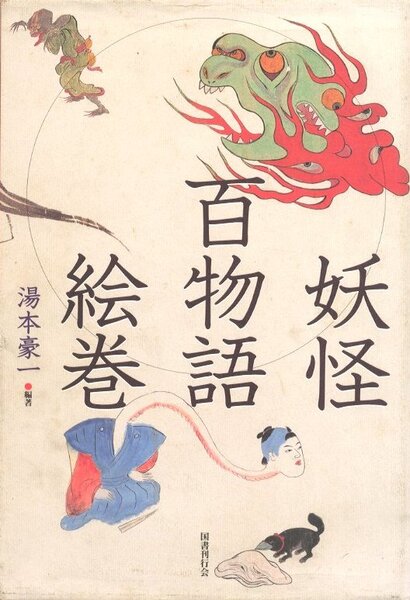 妖怪
百物語
絵巻
湯本豪一
●編著
国書刊行会